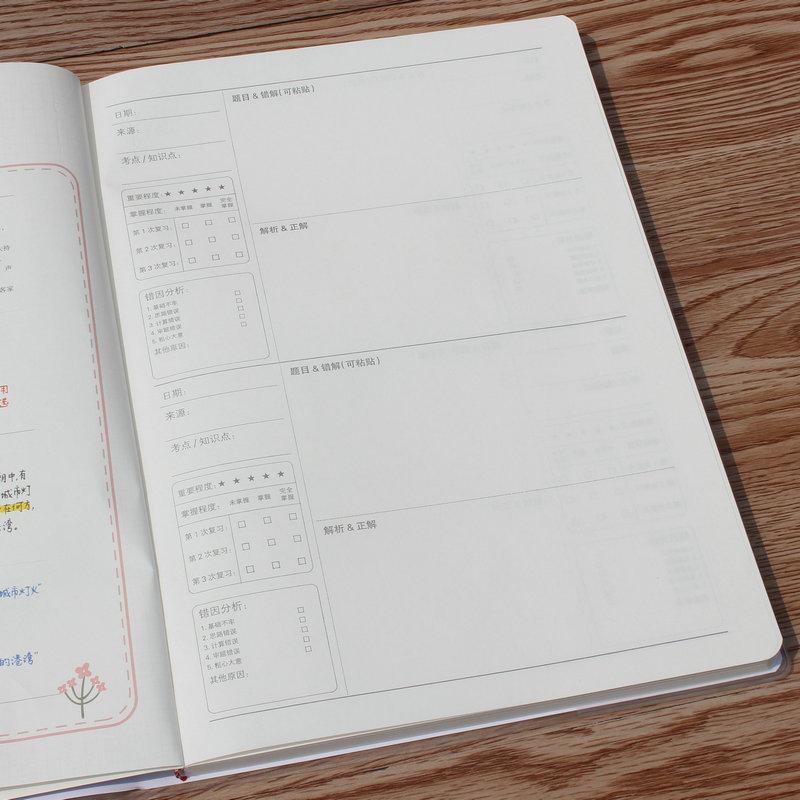 持
声
客家
用
选
月中,有
城市灯
在何方,
湾。
城市灯火"
的港湾"
日期:
来源:
考点/知识点:
重要程度:★ ★ ★ ★ ★
掌握程度: 未掌握 掌握 完全掌握
第1次复习: □ □ □
第2次复习: □ □ □
第3次复习: □ □ □
错因分析:
1. 基础不牢 □
2. 思路错误 □
3. 计算错误 □
4. 审题错误 □
5. 粗心大意 □
其他原因:
题目 & 错解(可粘贴)
解析 & 正解
日期:
来源:
考点/知识点:
重要程度:★ ★ ★ ★ ★
掌握程度: 未掌握 掌握 完全掌握
第1次复习: □ □ □
第2次复习: □ □ □
第3次复习: □ □ □
错因分析:
1. 基础不牢 □
2. 思路错误 □
3. 计算错误 □
4. 审题错误 □
5. 粗心大意 □
其他原因:
题目 & 错解(可粘贴)
解析 & 正解